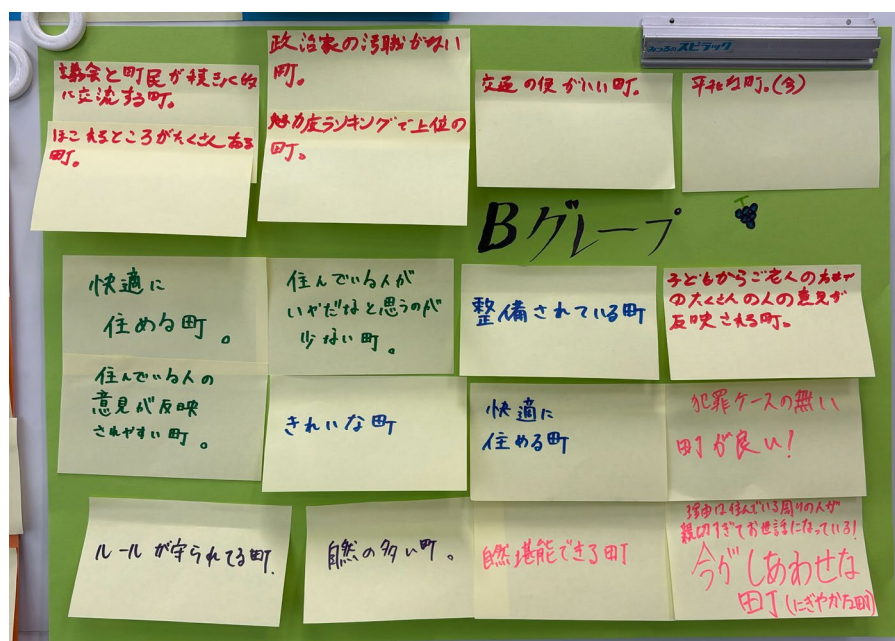 みつみのスピラック
議会と町民が積きょく的
に交流する町。
政治家の汚職がない
町。
交通の便がいい町。
平和な町。(今)
ほこれるところがたくさんある
町。
魅力度ランキングで上位の
町。
Bグループ
快適に
住める町。
住んでいる人が
いやだなと思うのが
少ない町。
整備されている町
子どもからご老人の方まで
のたくさんの人の意見が
反映される町。
住んでいる人の
意見が反映
されやすい町。
きれいな町
快適に
住める町
犯罪ケースの無い
町が良い!
ルールが守られてる町.
自然の多い町。
自然堪能できる町
理由は住んでいる周りの人が
親切すぎてお世話になっている!
今がしあわせな
町(にぎやかな町)